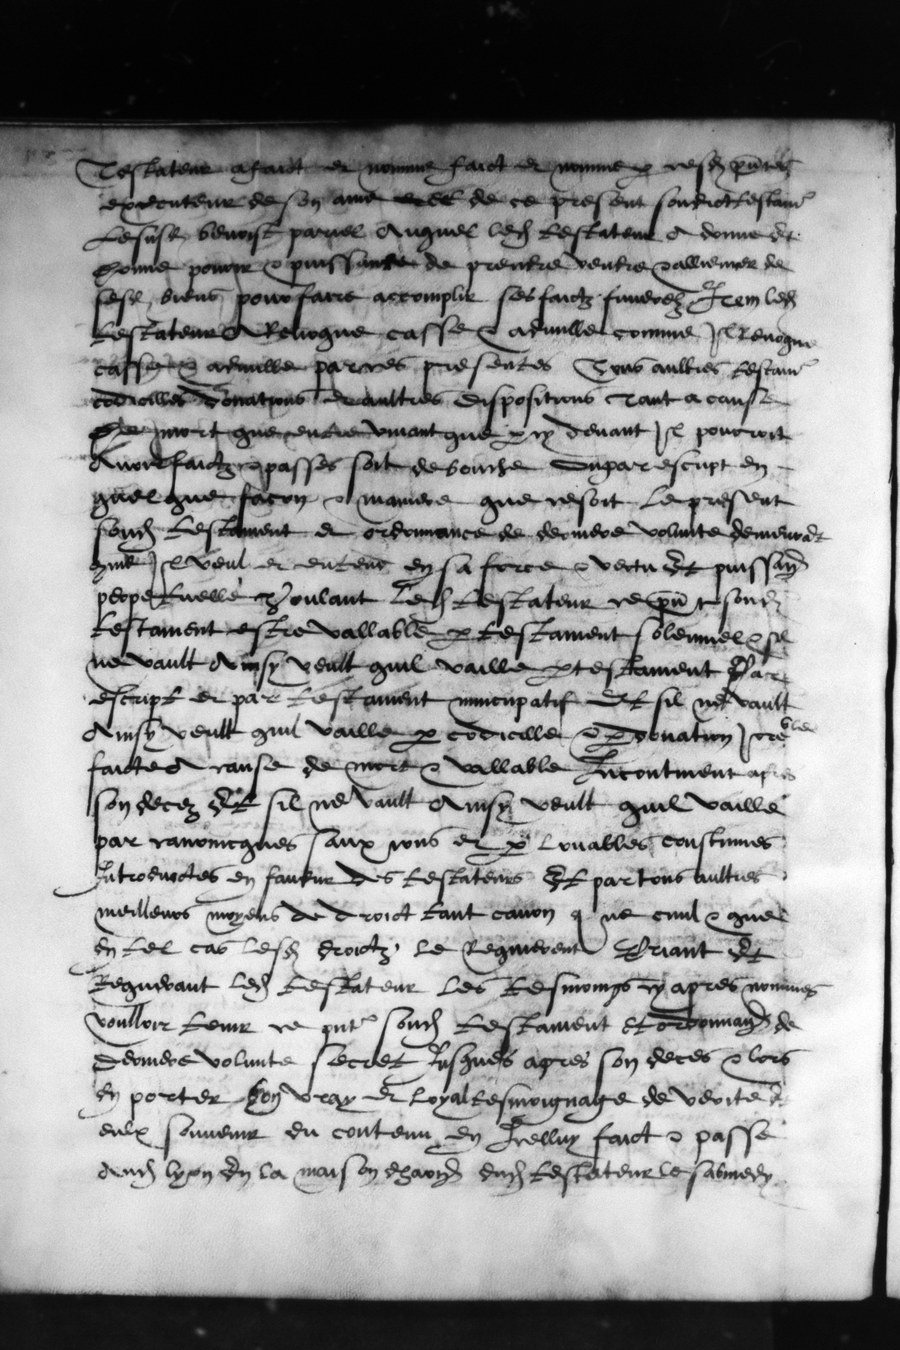 Testateur a faict et nomme faict et nomme p cesd pntes
executeur de son ame et de ce present sondict testamt
Lesusd benoist parvel Auquel led testateur a donne et
donne povoir & puissance de prendre vendre & alliener de
sesd biens pour faire accomplir ses faictz funerelz Item led
testateur A Revoque casse & adnulle comme Il Revoque
casse & adnulle par ces presentes Tous aultres testamt
codicilles donations et aultres dispositions Tant a cause
de mort que entre vivant que p cy devant Il pourroit
Avoir faictz & passes soit de bouche ou par escript en
quelque facon & maniere que ce soit Le present
sond testament et ordonnance de derniere volunte demeurat
Il veul et entend en sa force & vertu et puissan
perpetuelle Voulant Led testateur ce pnt sond
testament estre vallable p testament solennel & sil
ne vault Ainsy veult quil vaille p testament Par
escript et par testament nuncupatif Et sil ne vault
Ainsy veult quil vaille p codicille & p donation
faicte A cause de mort & vallable Incontinent apres
son decez Et sil ne vault Ainsy veult quil vaille
par canonicques sanxions et p louables coustumes
Introduictes en faveur des testateurs Et par tous aultres
meilleurs moyens de droict tant canon q ne civil & que
en tel cas lesd droictz le Requierent Priant Et
Requerant led testateur les tesmoings cy apres nommes
voulloir tenir ce pnt sond testament et ordonnan de
derniere volunte secret Jusques apres son deces & lors
en porter bon vray et loyal tesmoignage de verite &
eulx souvenir du contenu en Icelluy faict & passe
Aud lyon En la maison dhabitn dud testateur le sabmedy